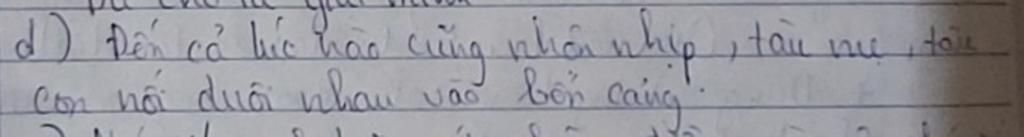 d) Đến cả lúc nào cũng nhộn nhịp, tàu mẹ, tàu
con nối đuôi nhau vào bến cảng.